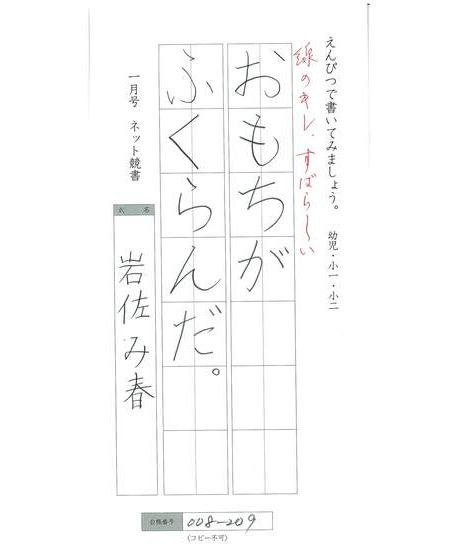 えんぴつで書いてみましょう。 幼児・小一・小二
線のキレ、すばらしい
おもちが
ふくらんだ。
一月号 ネット競書
氏名
岩佐み春
会員番号 008-209
(コピー不可)